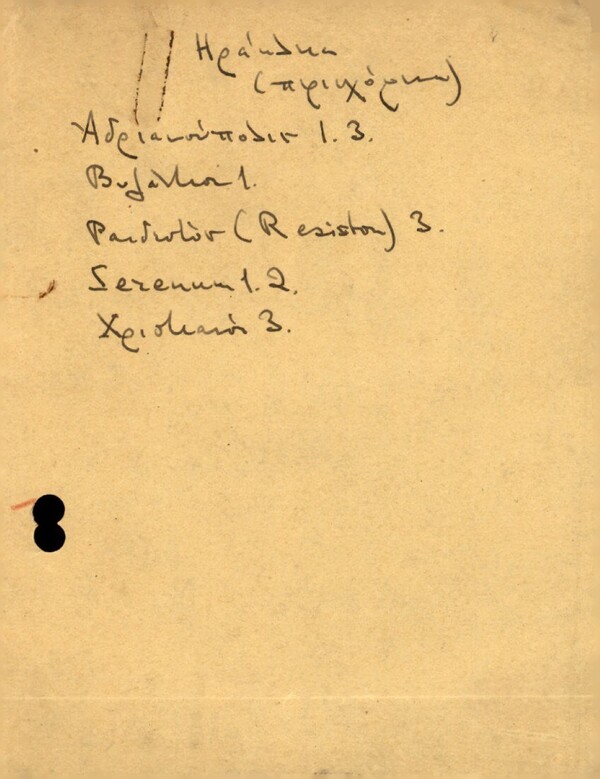 Ηράκλεια
(περιχόρεια)
Αδριανούπολις 1. 3.
Βυζάντιον 1.
Ραιδεστόν (Resiston) 3.
Serenum 1. 2.
Χριστιανοί 3.